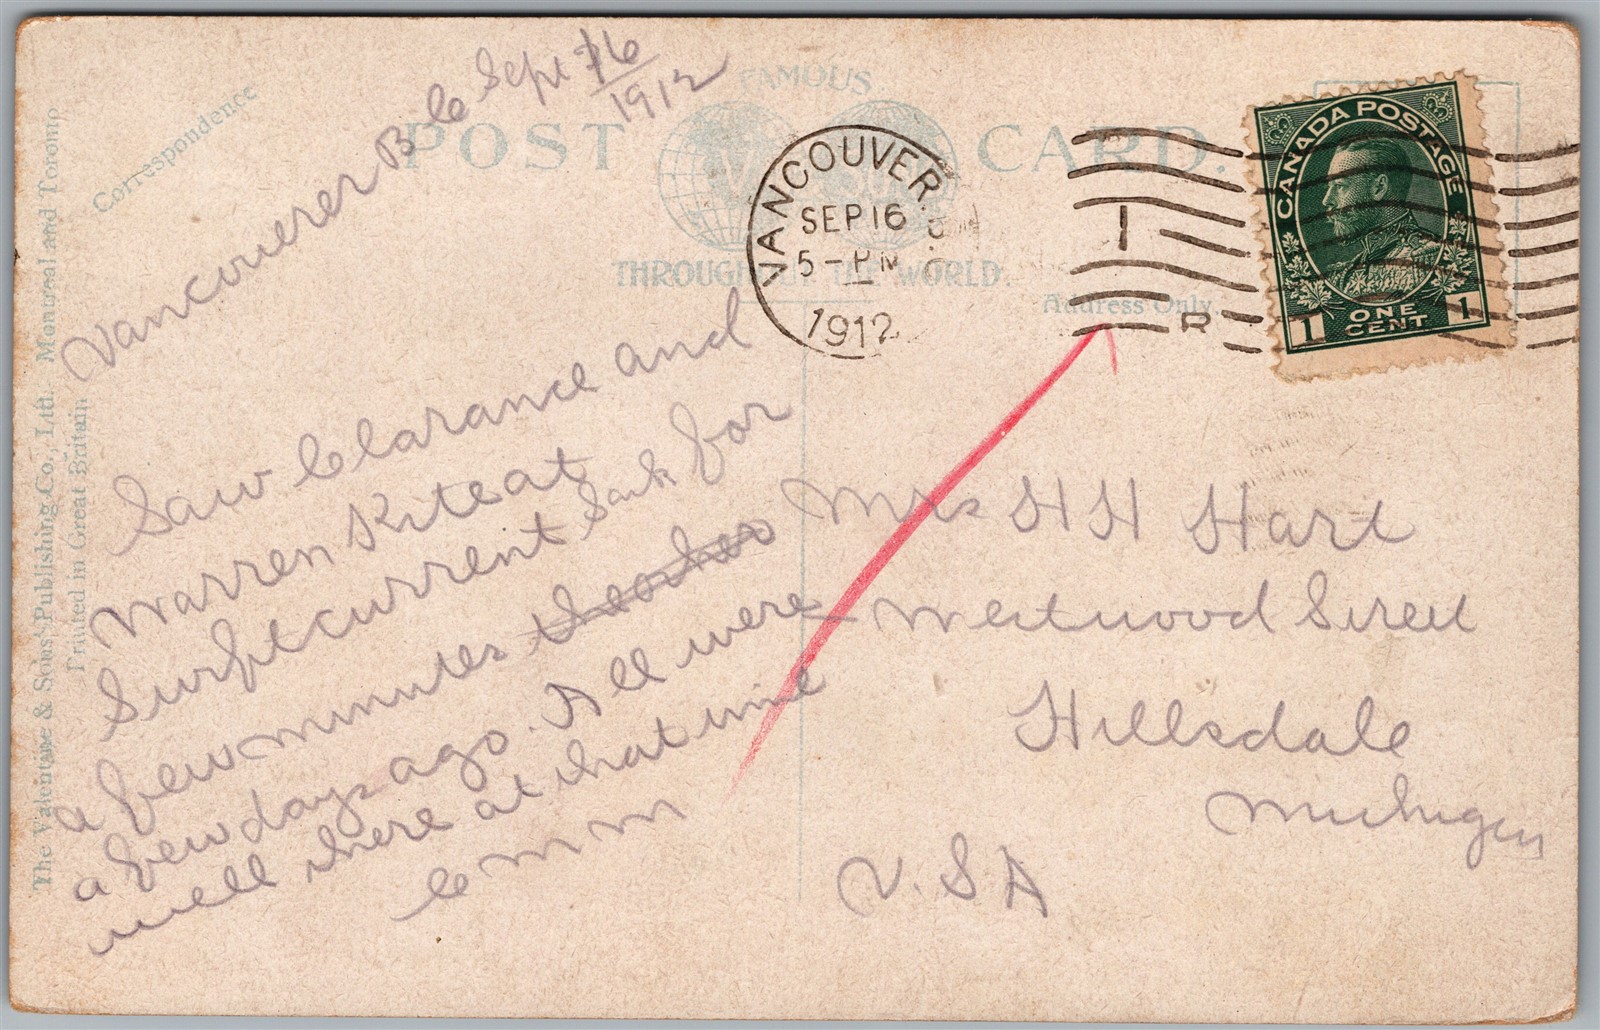 Vancouver B C Sept 16
1912
Correspondence
FAMOUS
POST CARD.
THROUGHOUT THE WORLD
Address Only.
The Valentine & Sons' Publishing Co., Ltd. Montreal and Toronto
Printed in Great Britain
VANCOUVER.
SEP 16
5 - PM
1912
1
R
CANADA POSTAGE
1 ONE CENT 1
Saw Clarance and
Warren Kite at
Swiftcurrent Sask for
a few minutes
a few days ago. All were
well there at that time
C M M
Mrs H H Hart
Westwood Street
Hillsdale
Michigan
U.S A